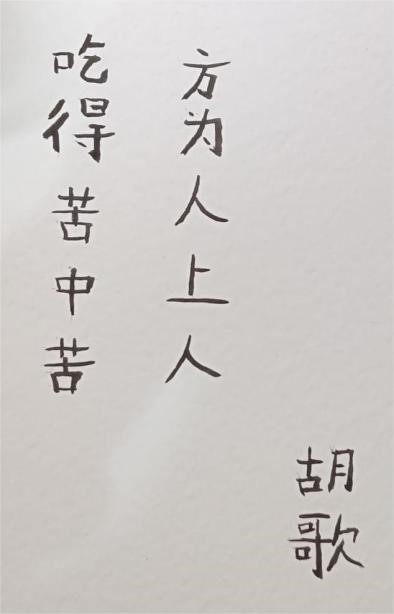 吃得苦中苦
方为人上人
胡歌